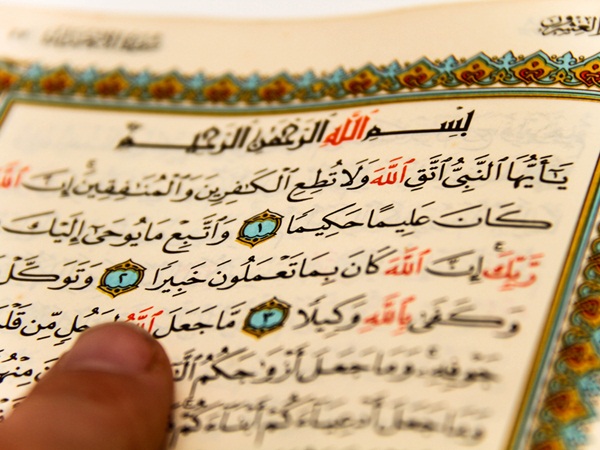 العشرون
بِسْمِ اللَّهِ الرَّحْمَٰنِ الرَّحِيمِ
يَٰٓأَيُّهَا ٱلنَّبِىُّ ٱتَّقِ ٱللَّهَ وَلَا تُطِعِ ٱلْكَٰفِرِينَ وَٱلْمُنَٰفِقِينَ إِنَّ ٱللَّهَ
كَانَ عَلِيمًا حَكِيمًا ١ وَٱتَّبِعْ مَا يُوحَىٰٓ إِلَيْكَ
رَبِّكَ إِنَّ ٱللَّهَ كَانَ بِمَا تَعْمَلُونَ خَبِيرًا ٢ وَتَوَكَّلْ
وَكَفَىٰ بِٱللَّهِ وَكِيلًا ٣ مَّا جَعَلَ ٱللَّهُ لِرَجُلٍ مِّن
جَوْفِهِۦ وَمَا جَعَلَ أَزْوَٰجَكُمُ
وَمَا جَعَلَ أَدْعِيَآءَكُمْ أَبْنَآءَكُمْ